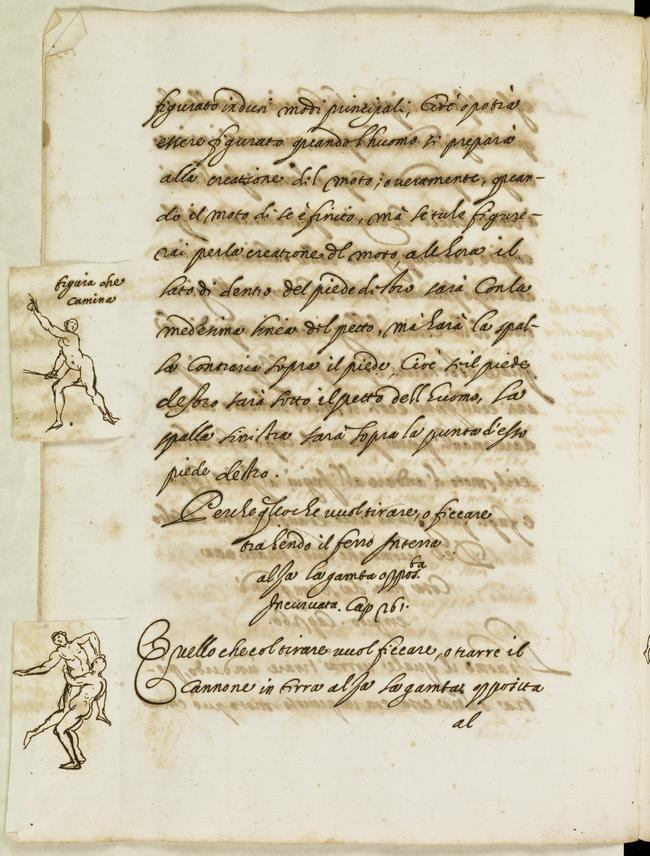 figurato in duri modi principali; Cioè o potrà
essere figurato quando l'huomo si prepara
alla creatione del moto; o veramente, quan-
do il moto di se è finito, mà se tu lo figure-
rai per la creatione del moto, alle hora il
lato di dentro del piede destro sarà con la
medesima linea del petto, mà harà la spal-
la contraria sopra il piede, Cioè se il piede
destro sarà sotto il petto dell'huomo, La
spalla sinistra sarà sopra la punta d'esso
piede destro.
figura che
camina
Perche q̃llo che vuol tirare, o ficcare
trahendo il ferro Interra
alza la gamba opposta
Incurvata. Cap 261.
Quello che col tirare vuol ficcare, o trarre il
Cannone in terra alza la gamba opposita
al